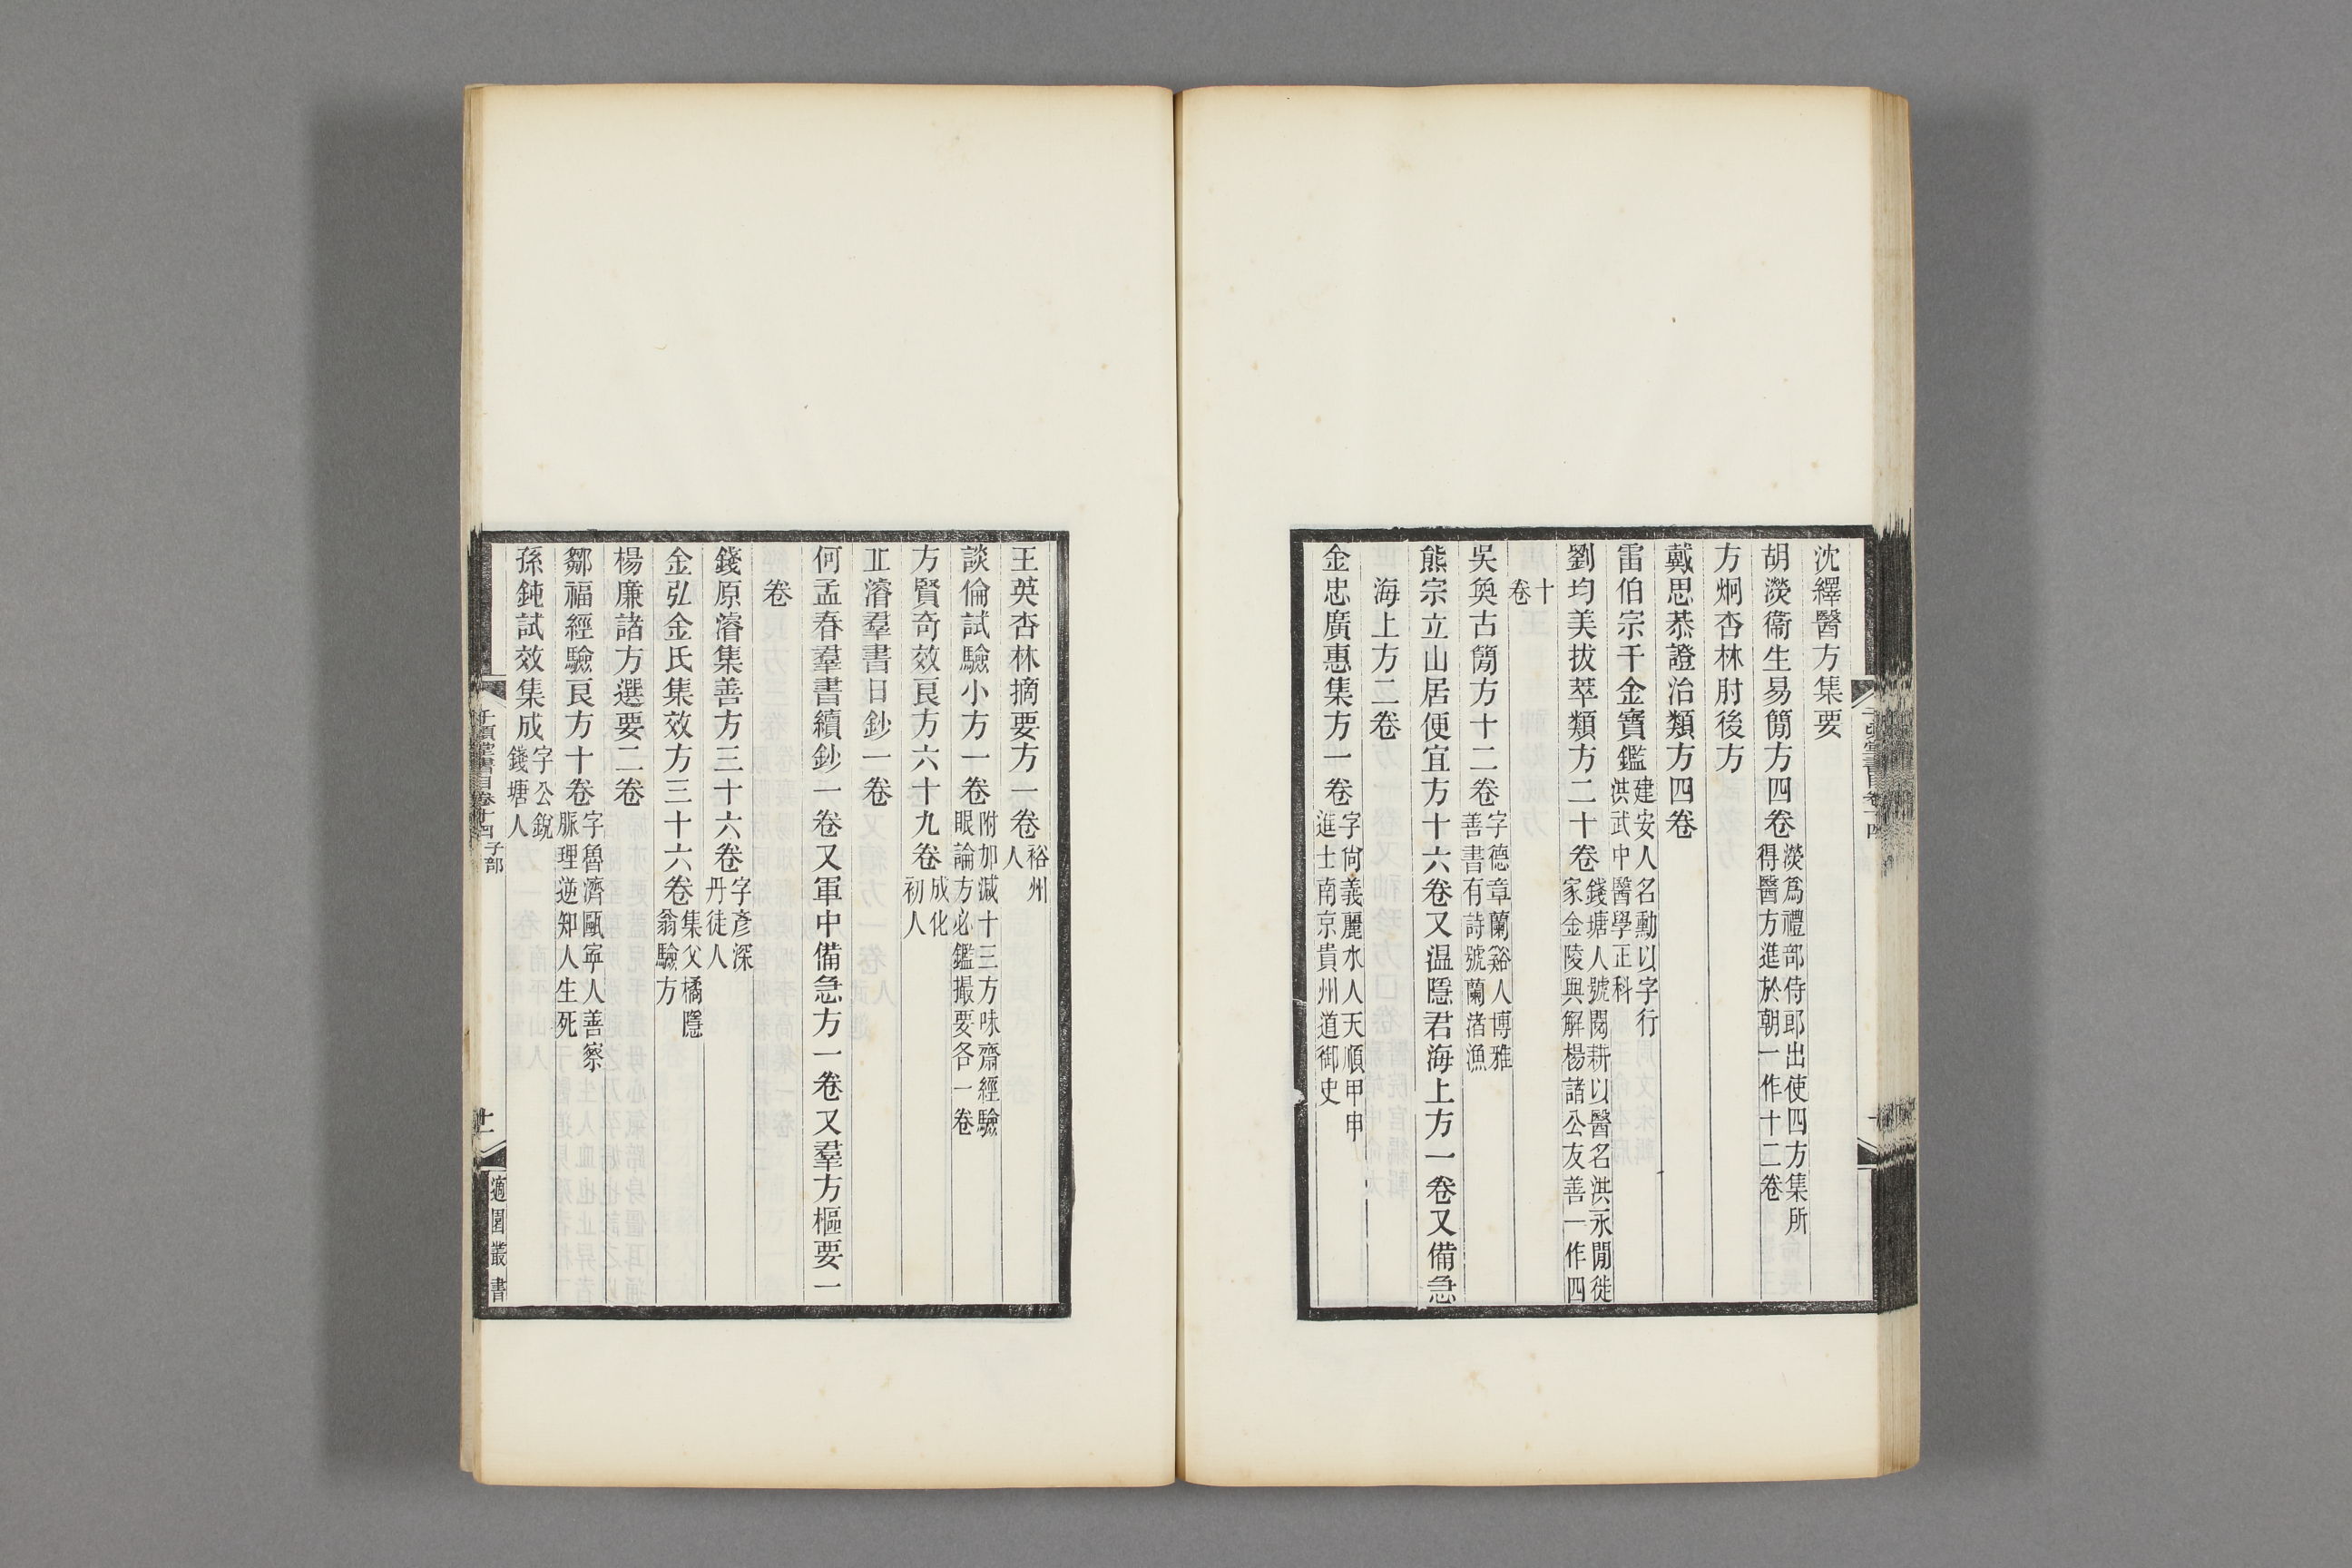 沈繹醫方集要
胡濙衞生易簡方四卷濙爲禮部侍郎出使四方集所得醫方進於朝一作十二卷
方炯杏林肘後方
戴思恭證治類方四卷
雷伯宗千金寶鑑建安人名勳以字行洪武中醫學正科
劉均美拔萃類方二十卷錢塘人號閱耕以醫名洪永閒徙家金陵與解楊諸公友善一作四
十卷
吳奐古簡方十二卷字德章蘭谿人博雅善書有詩號蘭渚漁
熊宗立山居便宜方十六卷又温隱君海上方一卷又備急
海上方二卷
金忠廣惠集方一卷字尙義麗水人天順甲申進士南京貴州道御史
王英杏林摘要方一卷裕州人
談倫試驗小方一卷附加減十三方味齋經驗眼論方必鑑撮要各一卷
方賢奇效良方六十九卷成化初人
丘濬羣書日鈔一卷
何孟春羣書續鈔一卷又軍中備急方一卷又羣方樞要一
卷
錢原濬集善方三十六卷字彥深丹徒人
金弘金氏集效方三十六卷集父橘隱翁驗方
楊廉諸方選要二卷
鄒福經驗良方十卷字魯濟甌寧人善察脈理逆知人生死
孫鈍試效集成字公銳錢塘人
千頃堂書目卷十四 子部
十一
適園叢書